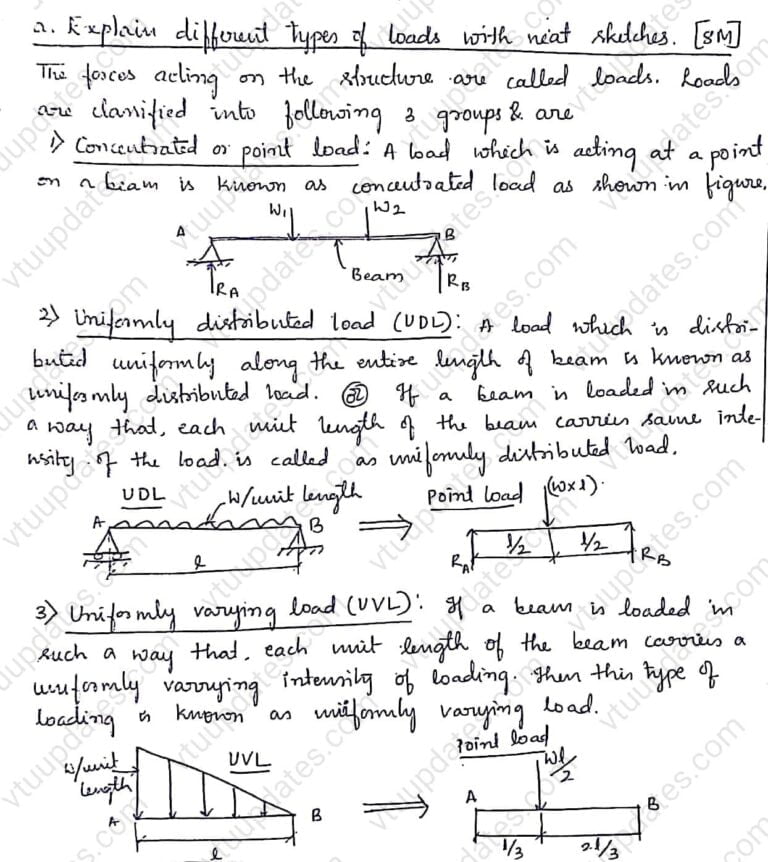 2. Explain different types of loads with neat sketches. [8M]
The forces acting on the structure are called loads. Loads
are classified into following 3 groups & are
1) Concentrated or point load: A load which is acting at a point
on a beam is known as concentrated load as shown in figure.
W1 W2
A B
RA Beam RB
2) Uniformly distributed load (UDL): A load which is distri-
buted uniformly along the entire length of beam is known as
uniformly distributed load. (OR) If a beam is loaded in such
a way that, each unit length of the beam carries same inte-
nsity of the load is called as uniformly distributed load.
UDL W/unit length Point Load (w×l)
A B l/2 l/2
l RA RB
3) Uniformly varying load (UVL): If a beam is loaded in
such a way that, each unit length of the beam carries a
uniformly varying intensity of loading. Then this type of
loading is known as uniformly varying load.
W/unit length UVL Point load Wl/2
A B A B
l l/3 2l/3
vtuupdates.com